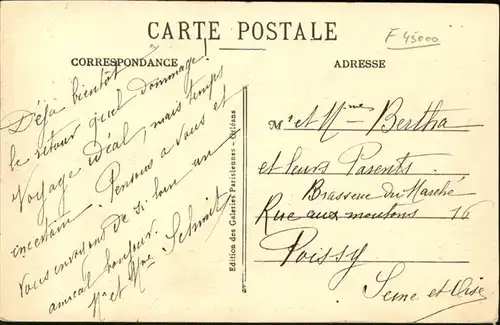 CARTE POSTALE
F 45000
CORRESPONDANCE
ADRESSE
Déjà bientôt
le retour quel dommage!
Voyage idéal, mais temps
incertain. Pensons à vous et
vous envoyons de si loin un
amical bonjour.
Mr et Mme Schmitt
Edition des Galeries Parisiennes - Orléans
Mr et Mme Bertha
et leurs Parents.
Brasseue du Marché
Rue aux moutons 16
Poissy
Seine et Oise